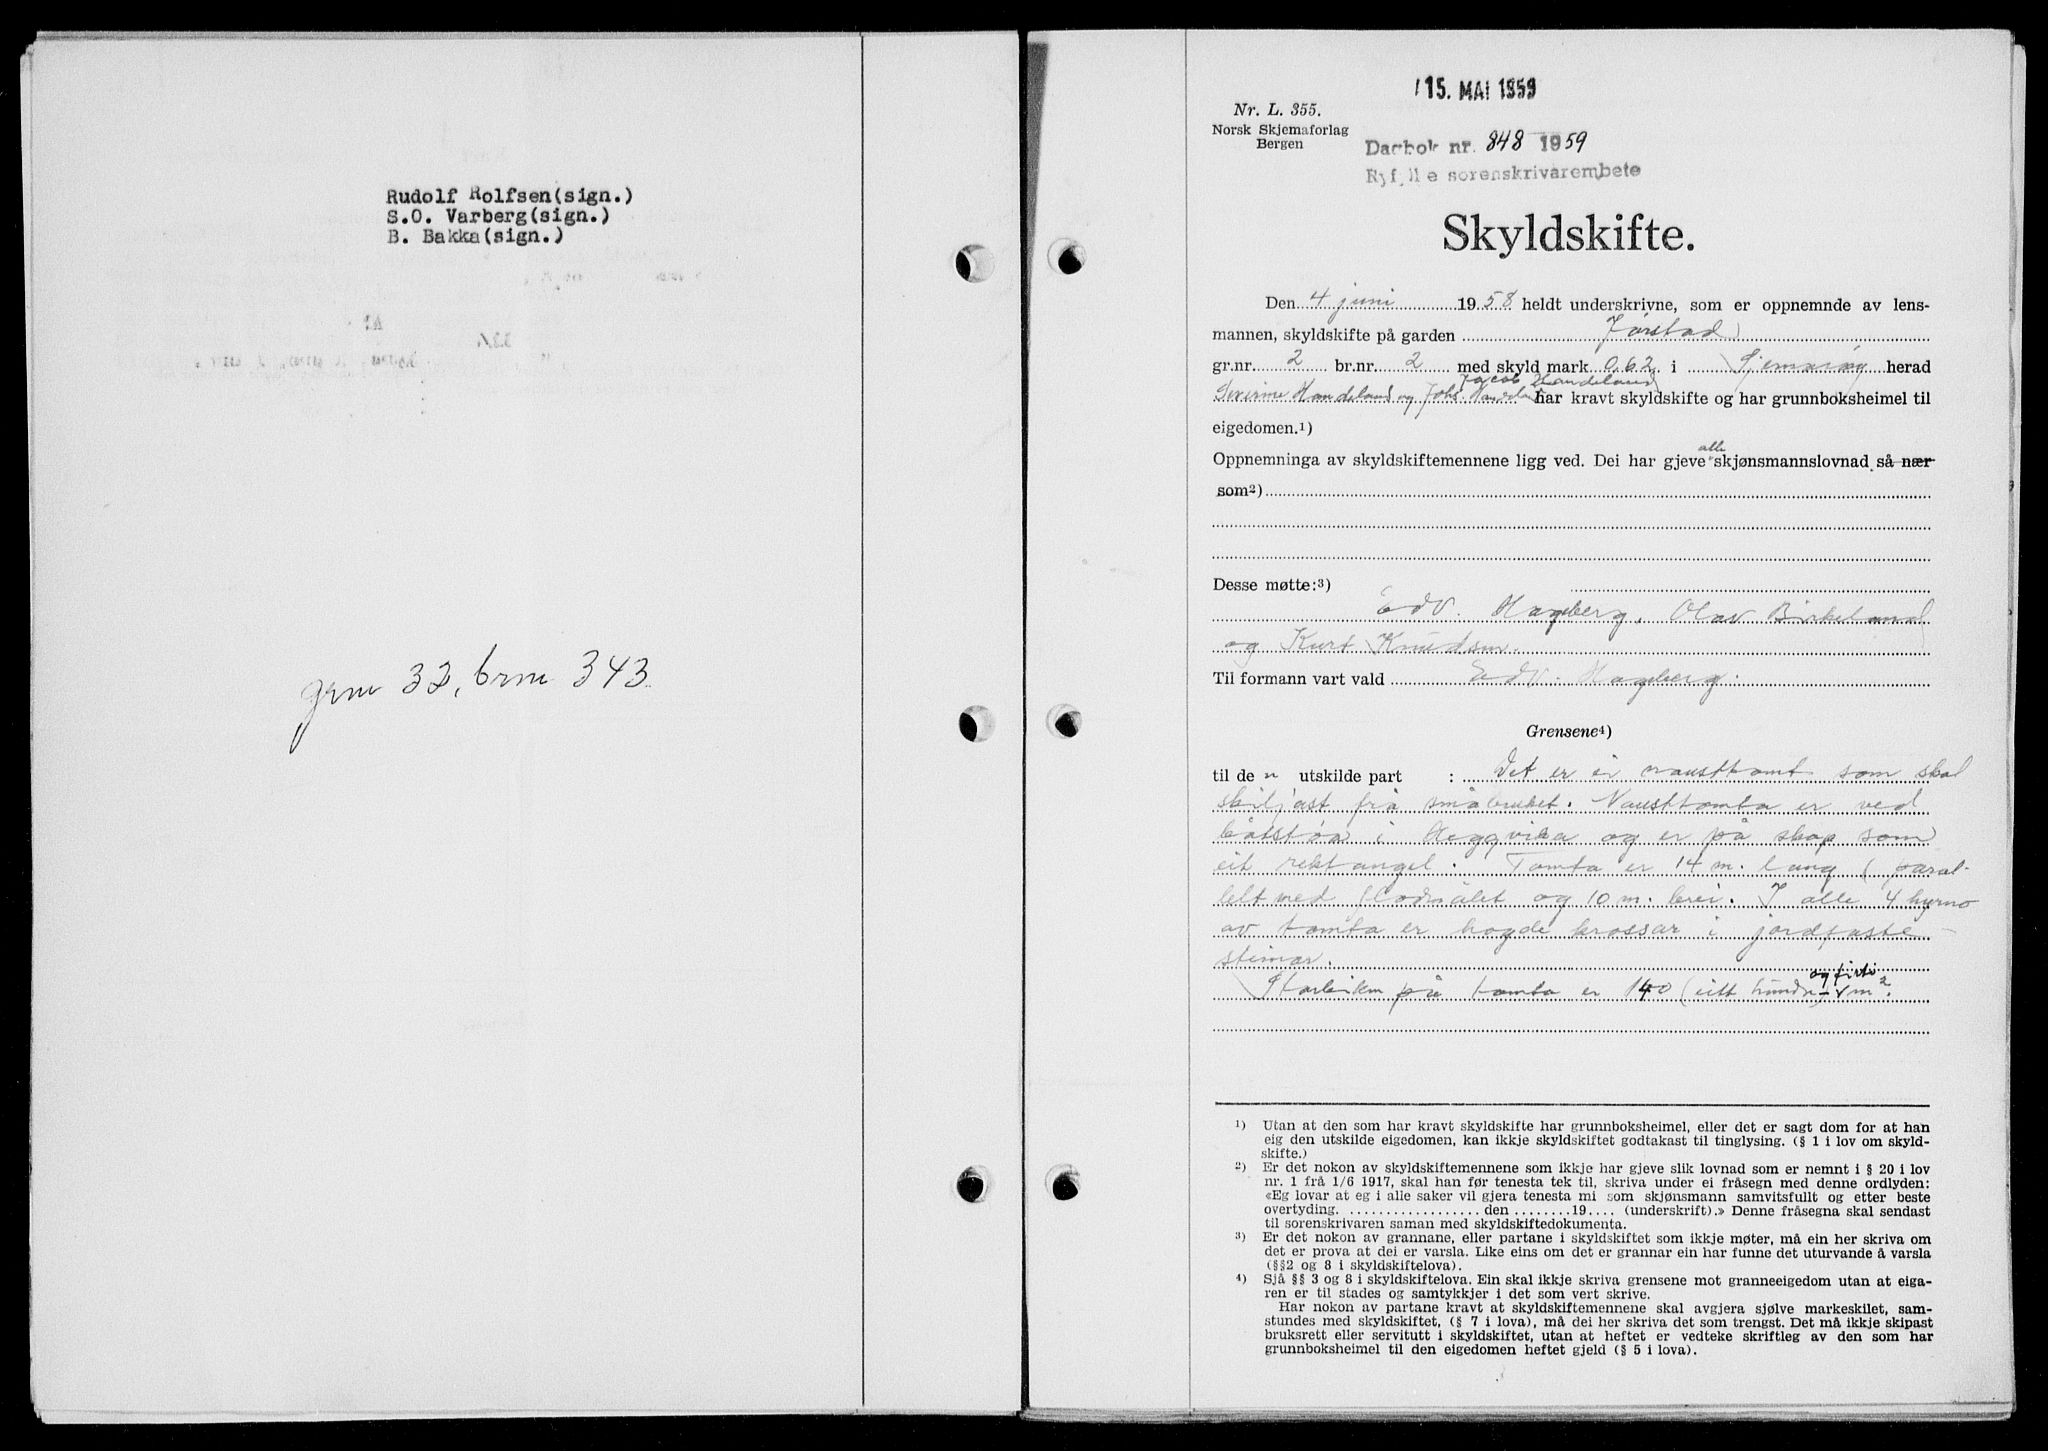 Rudolf Rolfsen(sign.)
S.O. Varberg(sign.)
B. Bakka(sign.)
grnr 32, brnr 343.
15. MAI 1959
Nr. L. 355.
Norsk Skjemaforlag
Bergen
Dagbok nr. 848 1959
Ryfylke sorenskrivarembete
Skyldskifte.
Den 4 juni 1958 heldt underskrivne, som er oppnemnde av lens-
mannen, skyldskifte på garden Jørstad
gr.nr. 2 br.nr. 2 med skyld mark 0,62 i Sjernarøy herad
Jacob Handeland
Severine Handeland og Johs. Handeland har kravt skyldskifte og har grunnboksheimel til
eigedomen.1)
alle
Oppnemninga av skyldskiftemennene ligg ved. Dei har gjeve skjønsmannslovnad så nær
som2)
Desse møtte:3)
Edv. Hageberg, Olav Birkeland
og Kurt Knudsen.
Til formann vart vald Edv. Hageberg.
Grensene4)
til de n utskilde part : Det er ei nausttomt som skal
skiljast frå småbruket. Nausttomta er ved
båtstøa i Heggvika og er på skap som
eit rektangel. Tomta er 14 m. lang (paral-
lelt med flodmålet og 10 m. brei. I alle 4 hyrno
av tomta er hogde krossar i jordfaste
steinar.
og firti
Storleiken på tomta er 140 (eitt hundr) m2.
1) Utan at den som har kravt skyldskifte har grunnboksheimel, eller det er sagt dom for at han
eig den utskilde eigedomen, kan ikkje skyldskiftet godtakast til tinglysing. (§ 1 i lov om skyld-
skifte.)
2) Er det nokon av skyldskiftemennene som ikkje har gjeve slik lovnad som er nemnt i § 20 i lov
nr. 1 frå 1/6 1917, skal han før tenesta tek til, skriva under ei fråsegn med denne ordlyden:
«Eg lovar at eg i alle saker vil gjera tenesta mi som skjønsmann samvitsfullt og etter beste
overtyding. .................. den ........19.... (underskrift).» Denne fråsegna skal sendast
til sorenskrivaren saman med skyldskiftedokumenta.
3) Er det nokon av grannane, eller partane i skyldskiftet som ikkje møter, må ein her skriva om
det er prova at dei er varsla. Like eins om det er grannar ein har funne det uturvande å varsla
(§§2 og 8 i skyldskiftelova).
4) Sjå §§ 3 og 8 i skyldskiftelova. Ein skal ikkje skriva grensene mot granneeigedom utan at eiga-
ren er til stades og samtykkjer i det som vert skrive.
Har nokon av partane kravt at skyldskiftemennene skal avgjera sjølve markeskilet, sam-
stundes med skyldskiftet, (§ 7 i lova), må dei her skriva det som trengst. Det må ikkje skipast
bruksrett eller servitutt i skyldskiftet, utan at heftet er vedteke skriftleg av den som har
grunnboksheimel til den eigedomen heftet gjeld (§ 5 i lova).